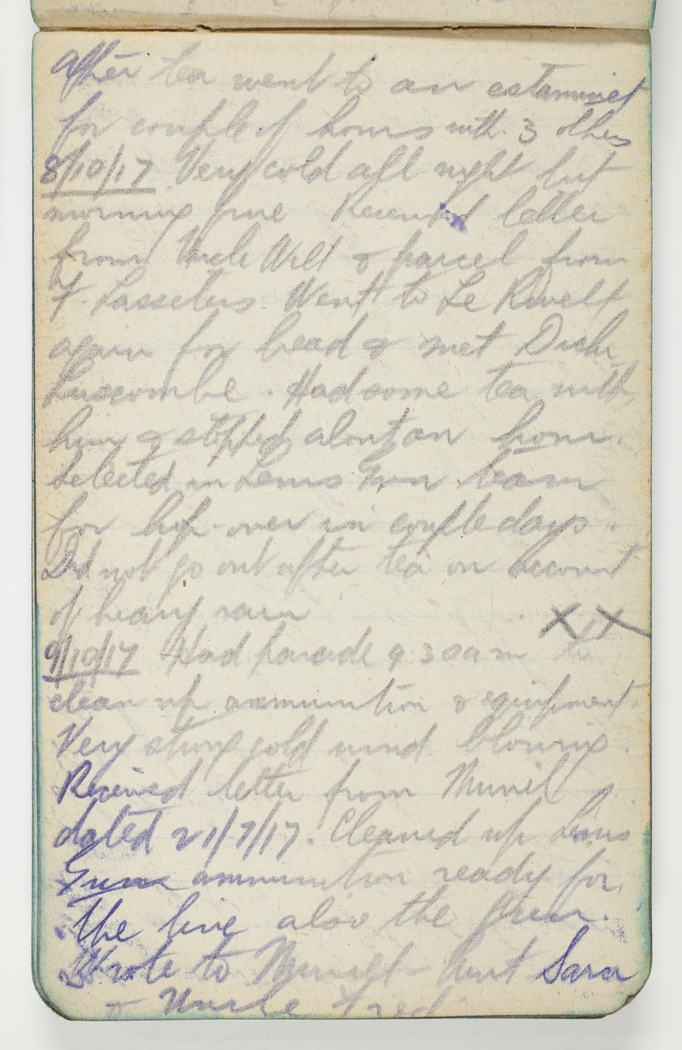 After tea went to an estaminet
for couple of hours with 3 others
8/10/17 Very cold all night but
morning fine Received letter
from Uncle Will & parcel from
F. Lasseters Went to Le Rivelt
again for bread & met Dick
Luscombe. Had some tea with
him & stopped about an hour.
Selected in Lewis Gun team
for hop-over in couple days.
Did not go out after tea on account
of heavy rain XIX
9/10/17 Had parade 9 30 am to
clean up ammunition & equipment.
Very strong cold wind blowing.
Received letter from Muriel
dated 21/7/17. Cleaned up Lewis
Gun ammunition ready for
the line also the Gun.
Wrote to Muriel - Aunt Sara
& Uncle Fred